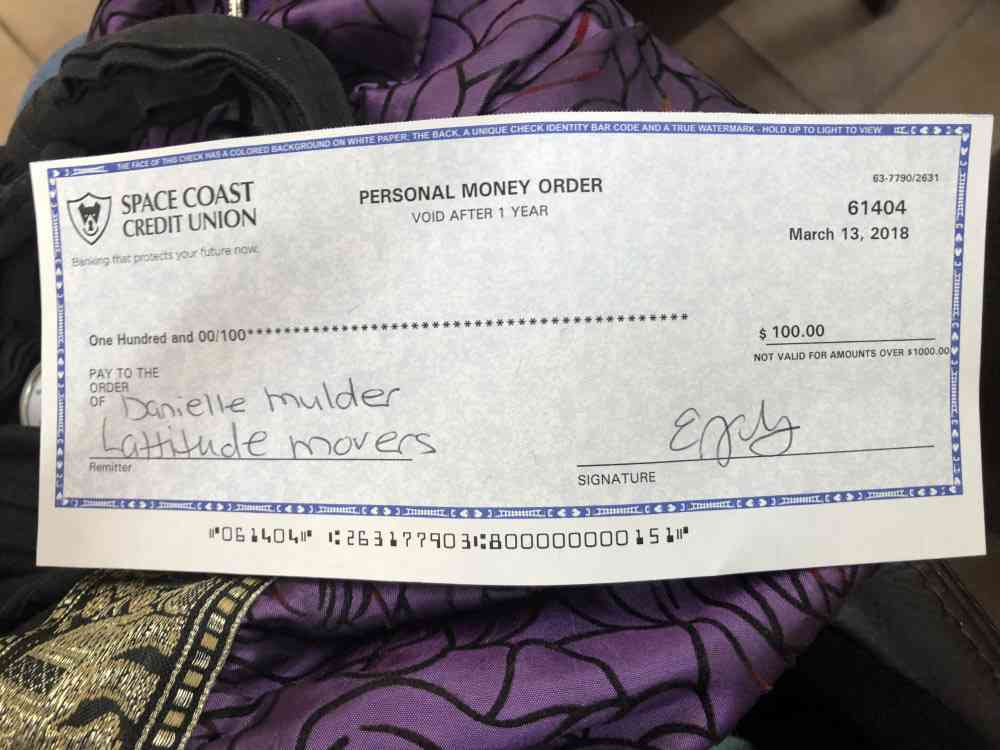 THE FACE OF THIS CHECK HAS A COLORED BACKGROUND ON WHITE PAPER, THE BACK, A UNIQUE CHECK IDENTITY BAR CODE AND A TRUE WATERMARK - HOLD UP TO LIGHT TO VIEW
SPACE COAST
CREDIT UNION
Banking that protects your future now.
PERSONAL MONEY ORDER
VOID AFTER 1 YEAR
63-7790/2631
61404
March 13, 2018
One Hundred and 00/100************************************************
$ 100.00
NOT VALID FOR AMOUNTS OVER $1000.00
PAY TO THE
ORDER
OF Danielle mulder
Lattitude movers
Remitter
SIGNATURE
⑈061404⑈ ⑆263177903⑆800000000151⑈